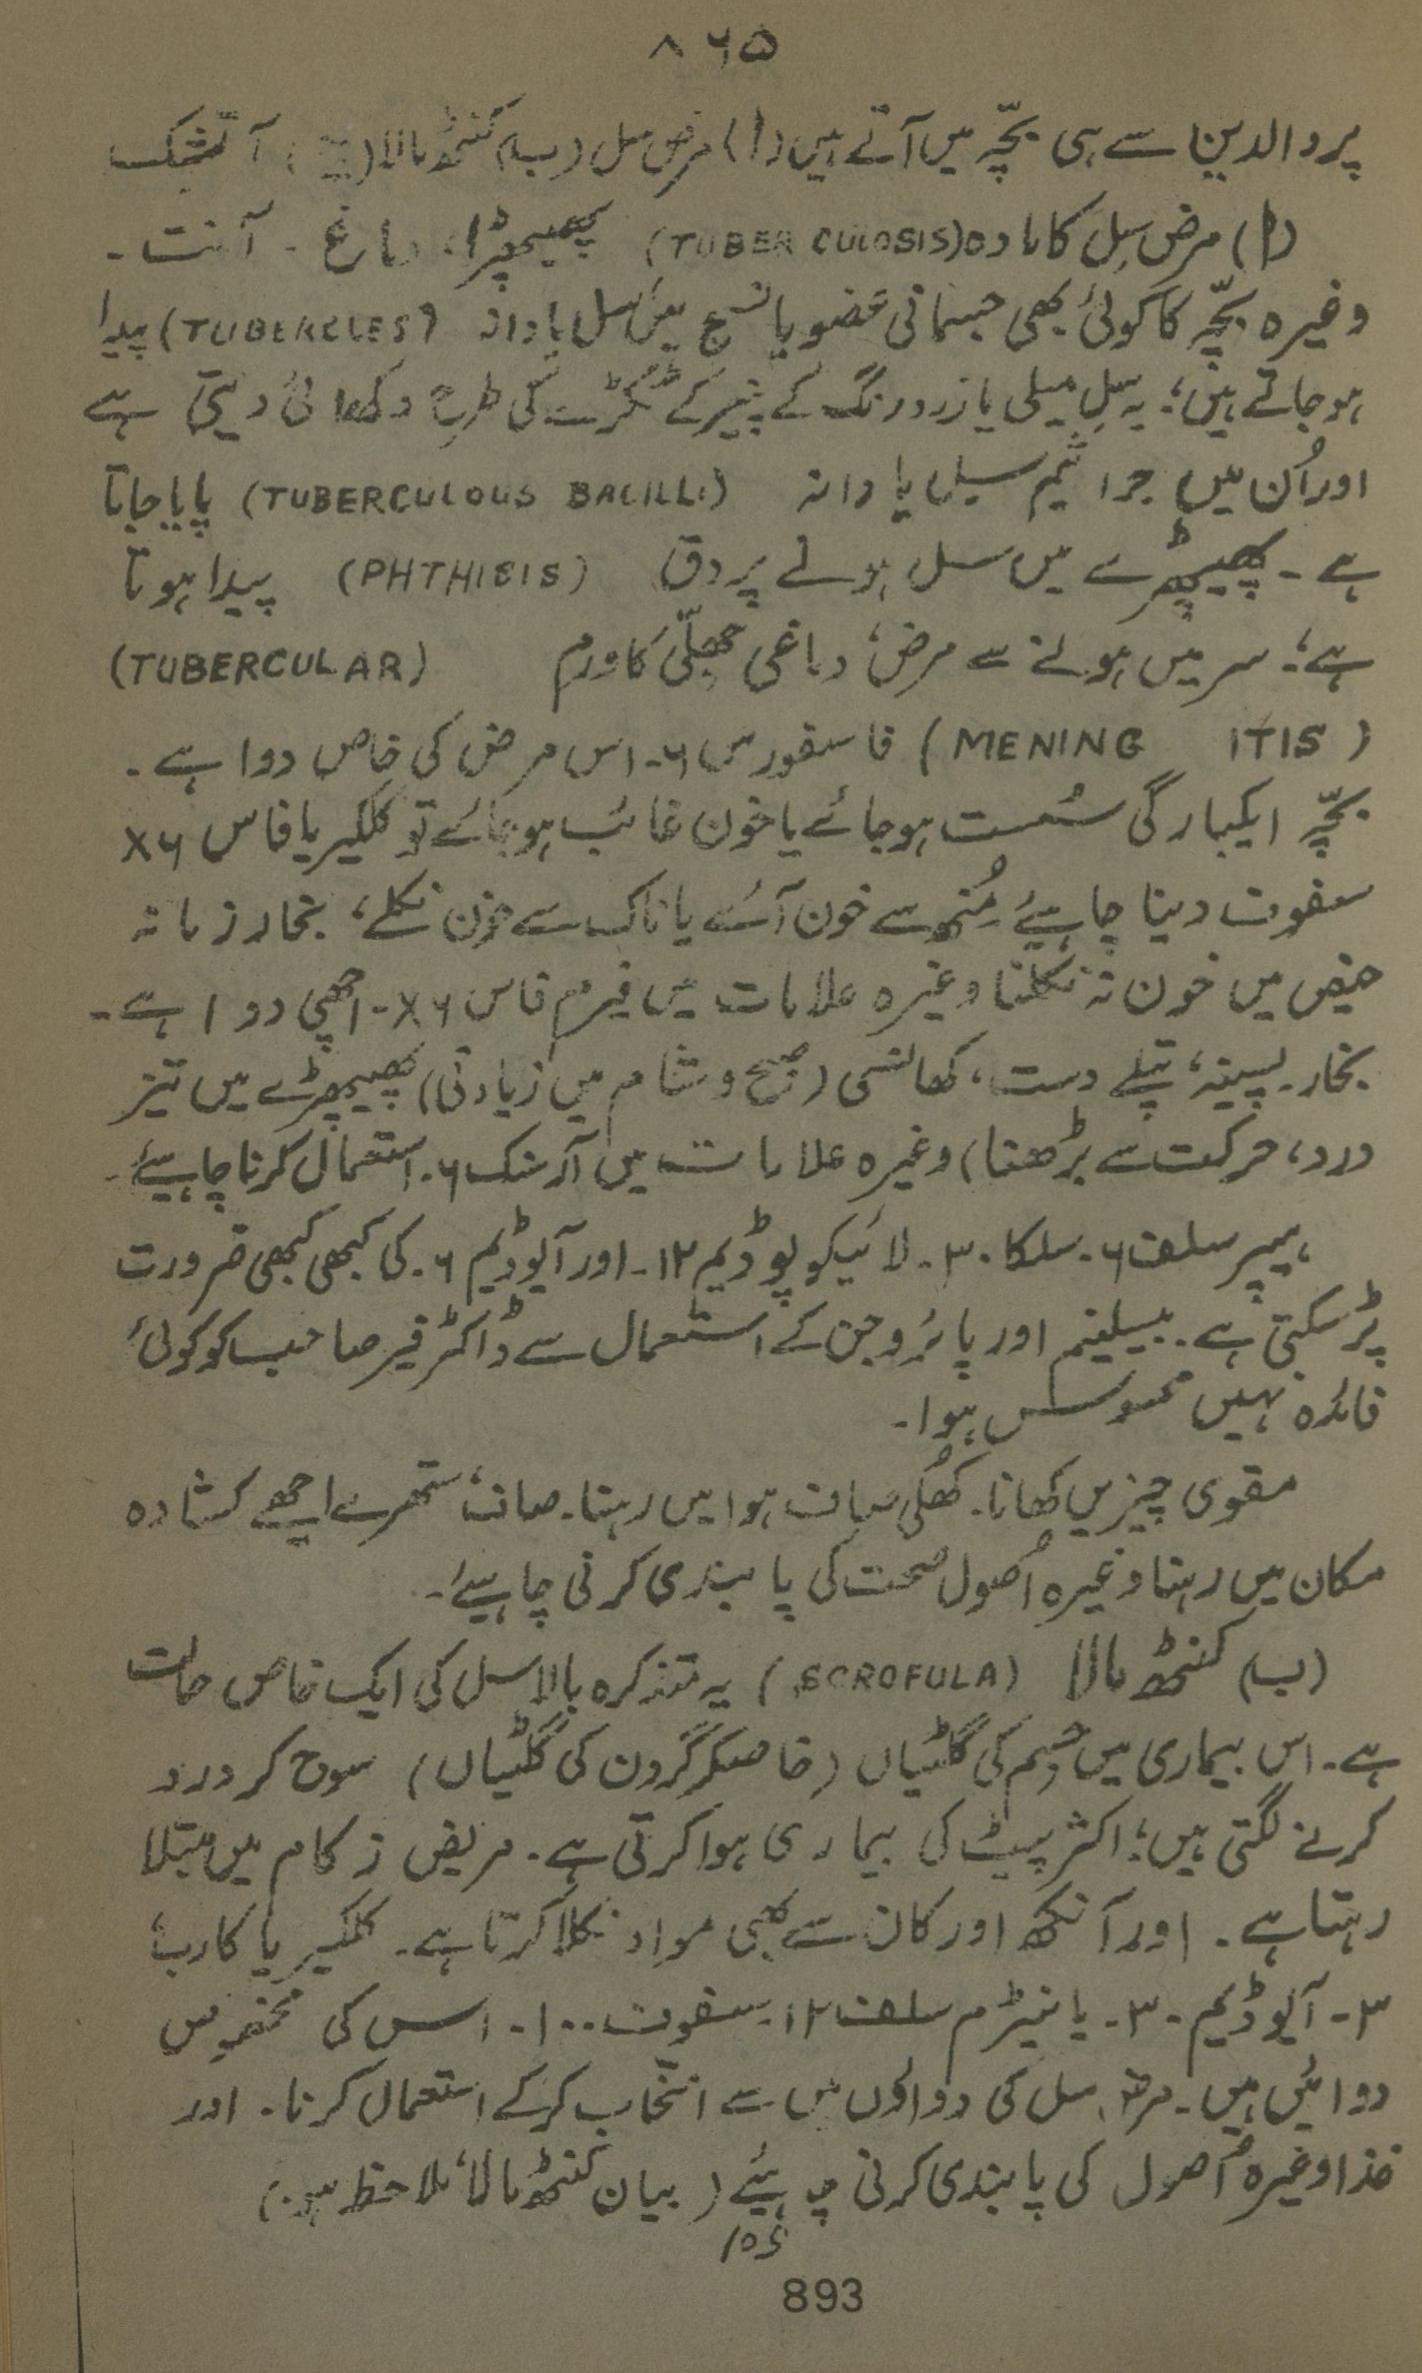 ۸۶۵
پر والدین سے ہی بچّہ میں آتے ہیں (ا) مرض سل (ب) کنٹھ مالا ( ) آتشک
(ا) مرض سِل کا مادہ (TUBER CULOSIS) پھیپھڑا، دماغ ۔ آنت ۔
وغیرہ بچّہ کا کوئی بھی جسمانی عضو یا نسج میں سل یا دانہ (TUBERCLES) پیدا
ہو جاتے ہیں؛ یہ سِل میلی یا زرد رنگ کے پنیر کے ٹکڑے کی طرح دکھائی دیتی ہے
اور اُن میں جراثیم سیل یا دانہ (TUBERCULOUS BACILLI) پایا جاتا
ہے ۔ پھیپھڑے میں سل ہونے پر دق (PHTHISIS) پیدا ہوتا
ہے؛ سر میں ہونے سے مرض، دماغی جھلّی کا ورم (TUBERCULAR)
(MENING ITIS) فاسفورس ۶۔ اس مرض کی خاص دوا ہے ۔
بچّہ ایکبارگی سُست ہو جائے یا خون غائب ہو جائے تو کلکیریا فاس ۶X
سفوف دینا چاہیئے مُنھ سے خون آئے یا ناک سے خون نکلے، بخار زمانہ
حیض میں خون نہ نکلنا وغیرہ علامات میں فیرم فاس ۶X۔ اچھی دوا ہے ۔
بخار پسینہ، پتلے دست، کھانسی (صبح و شام میں زیادتی) پھیپھڑے میں تیز
درد، حرکت سے بڑھنا) وغیرہ علامات میں آرسنک ۶۔ استعمال کرنا چاہیئے ۔
ہیپر سلف ۶۔ سلکا ۳۰۔ لائیکوپوڈیم ۱۲۔ اور آیوڈیم ۶۔ کی کبھی کبھی ضرورت
پڑ سکتی ہے ۔ بیسلینم اور پائروجن کے استعمال سے ڈاکٹر فیر صاحب کو کوئی
فائدہ نہیں محسوس ہوا ۔
مقوی چیزیں کھانا ۔ کھُلی صاف ہوا میں رہنا ۔ صاف، ستھرے اچھے کشادہ
مکان میں رہنا وغیرہ اُصول صحت کی پابندی کرنی چاہیئے ۔
(ب) کنٹھ مالا (SCROFULA) یہ متذکرہ بالا سل کی ایک خاص حالت
ہے ۔ اس بیماری میں جسم کی گلٹیاں (خاصکر گردن کی گلٹیاں) سوج کر درد
کرنے لگتی ہیں؛ اکثر پیٹ کی بیماری ہوا کرتی ہے ۔ مریض زکام میں مبتلا
رہتا ہے ۔ اور آنکھ اور کان سے بھی مواد نکلا کرتا ہے ۔ کلکیریا کارب
۳۔ آیوڈیم ۳۰۔ یا نیٹرم سلف ۱۲۔ سفوف ۱۰۰۔ اس کی مخصوص
دوائیں ہیں ۔ مرض سل کی دواؤں میں سے انتخاب کر کے استعمال کرنا ۔ اور
غذا وغیرہ اُصول کی پابندی کرنی چاہیئے (بیان کنٹھ مالا ملاحظہ ہو)
893